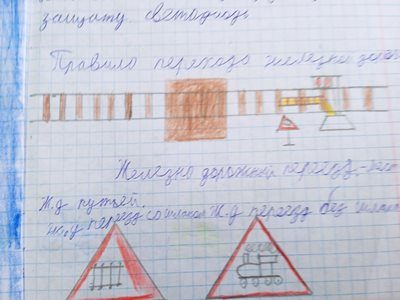 защиту светодиод.
Правило перехода железной доро
Железно дорожный переезд-
Ж.д путьей.
ж.д переезд со шлагом Ж.д переезд без шлаг